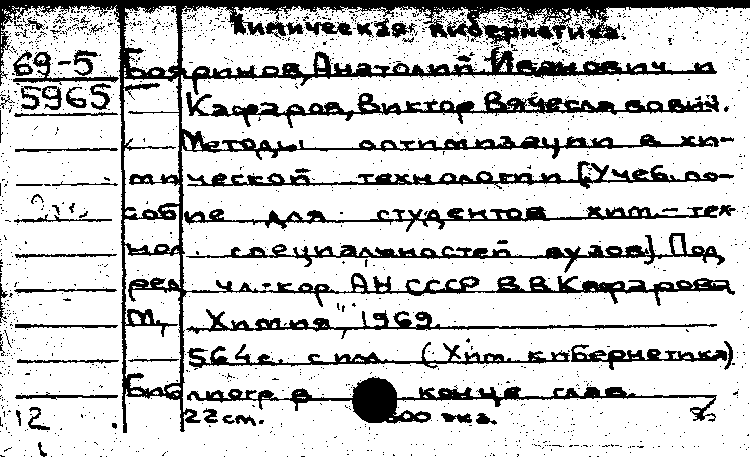 Химическая кибернетика.
69-5
5965
Бояринов, Анатолий Иванович и
Кафаров, Виктор Вячеславович.
Методы оптимизации в хи-
мической технологии [Учеб. по-
собие для студентов хим.-тех-
нол. специальностей вузов]. Под
ред. чл.-кор. АН СССР В.В. Кафарова
М., "Химия", 1969.
564 с. с ил. (Хим. кибернетика)
Библиогр. в конце глав.
12 22 см. 500 экз.